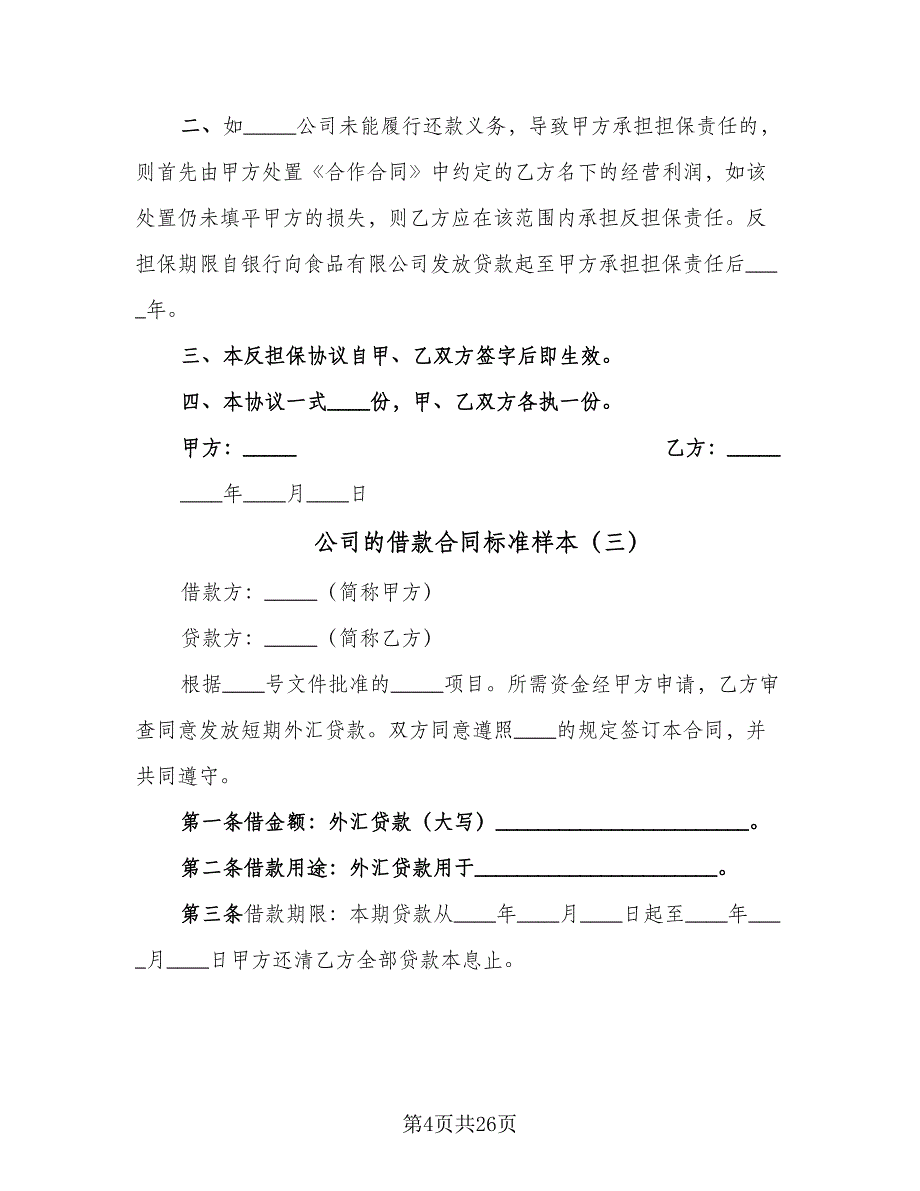 二、如_____公司未能履行还款义务，导致甲方承担担保责任的，
则首先由甲方处置《合作合同》中约定的乙方名下的经营利润，如该
处置仍未填平甲方的损失，则乙方应在该范围内承担反担保责任。反
担保期限自银行向食品有限公司发放贷款起至甲方承担担保责任后___
_年。
三、本反担保协议自甲、乙双方签字后即生效。
四、本协议一式____份，甲、乙双方各执一份。
甲方：_____ 乙方：_____
____年____月____日
公司的借款合同标准样本（三）
借款方：_____（简称甲方）
贷款方：_____（简称乙方）
根据____号文件批准的_____项目。所需资金经甲方申请，乙方审
查同意发放短期外汇贷款。双方同意遵照____的规定签订本合同，并
共同遵守。
第一条借金额：外汇贷款（大写）________________________。
第二条借款用途：外汇贷款用于_______________________。
第三条借款期限：本期贷款从____年____月____日起至____年___
_月____日甲方还清乙方全部贷款本息止。
第4页共26页